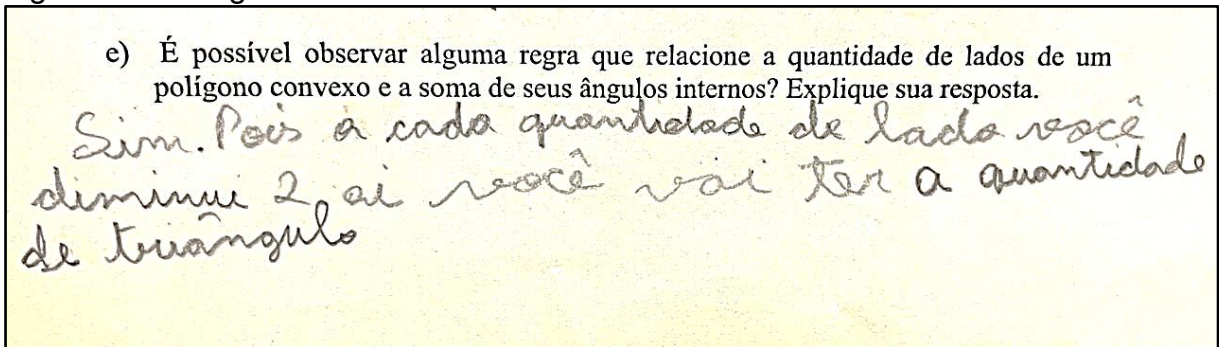 e) É possível observar alguma regra que relacione a quantidade de lados de um
polígono convexo e a soma de seus ângulos internos? Explique sua resposta.
Sim. Pois a cada quantidade de lado você
diminui 2, ai você vai ter a quantidade
de triângulo